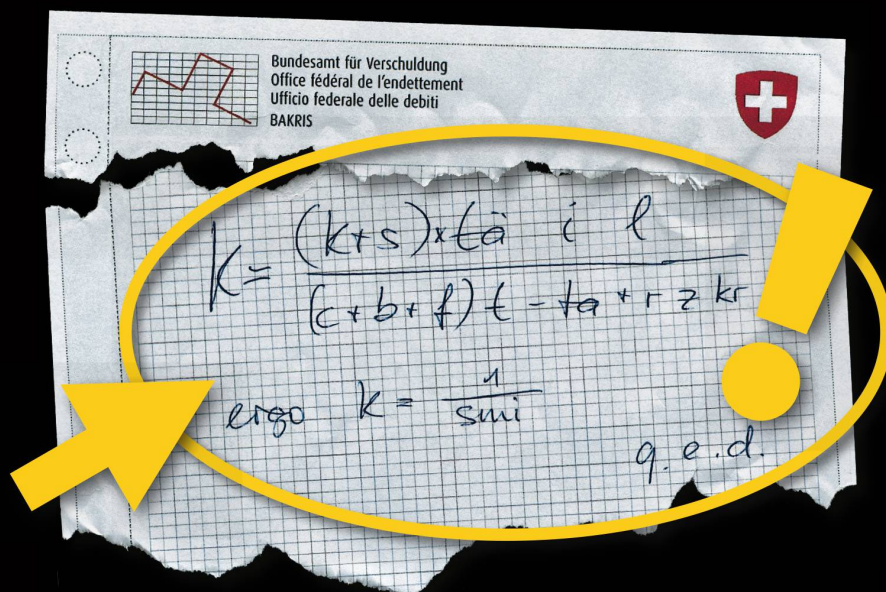 Bundesamt für Verschuldung
Office fédéral de l'endettement
Ufficio federale delle debiti
BAKRIS
k = (k+s)×tä i l
(c+b+f) t - ta + r z kr
ergo k = 1
smi
q.e.d.
!